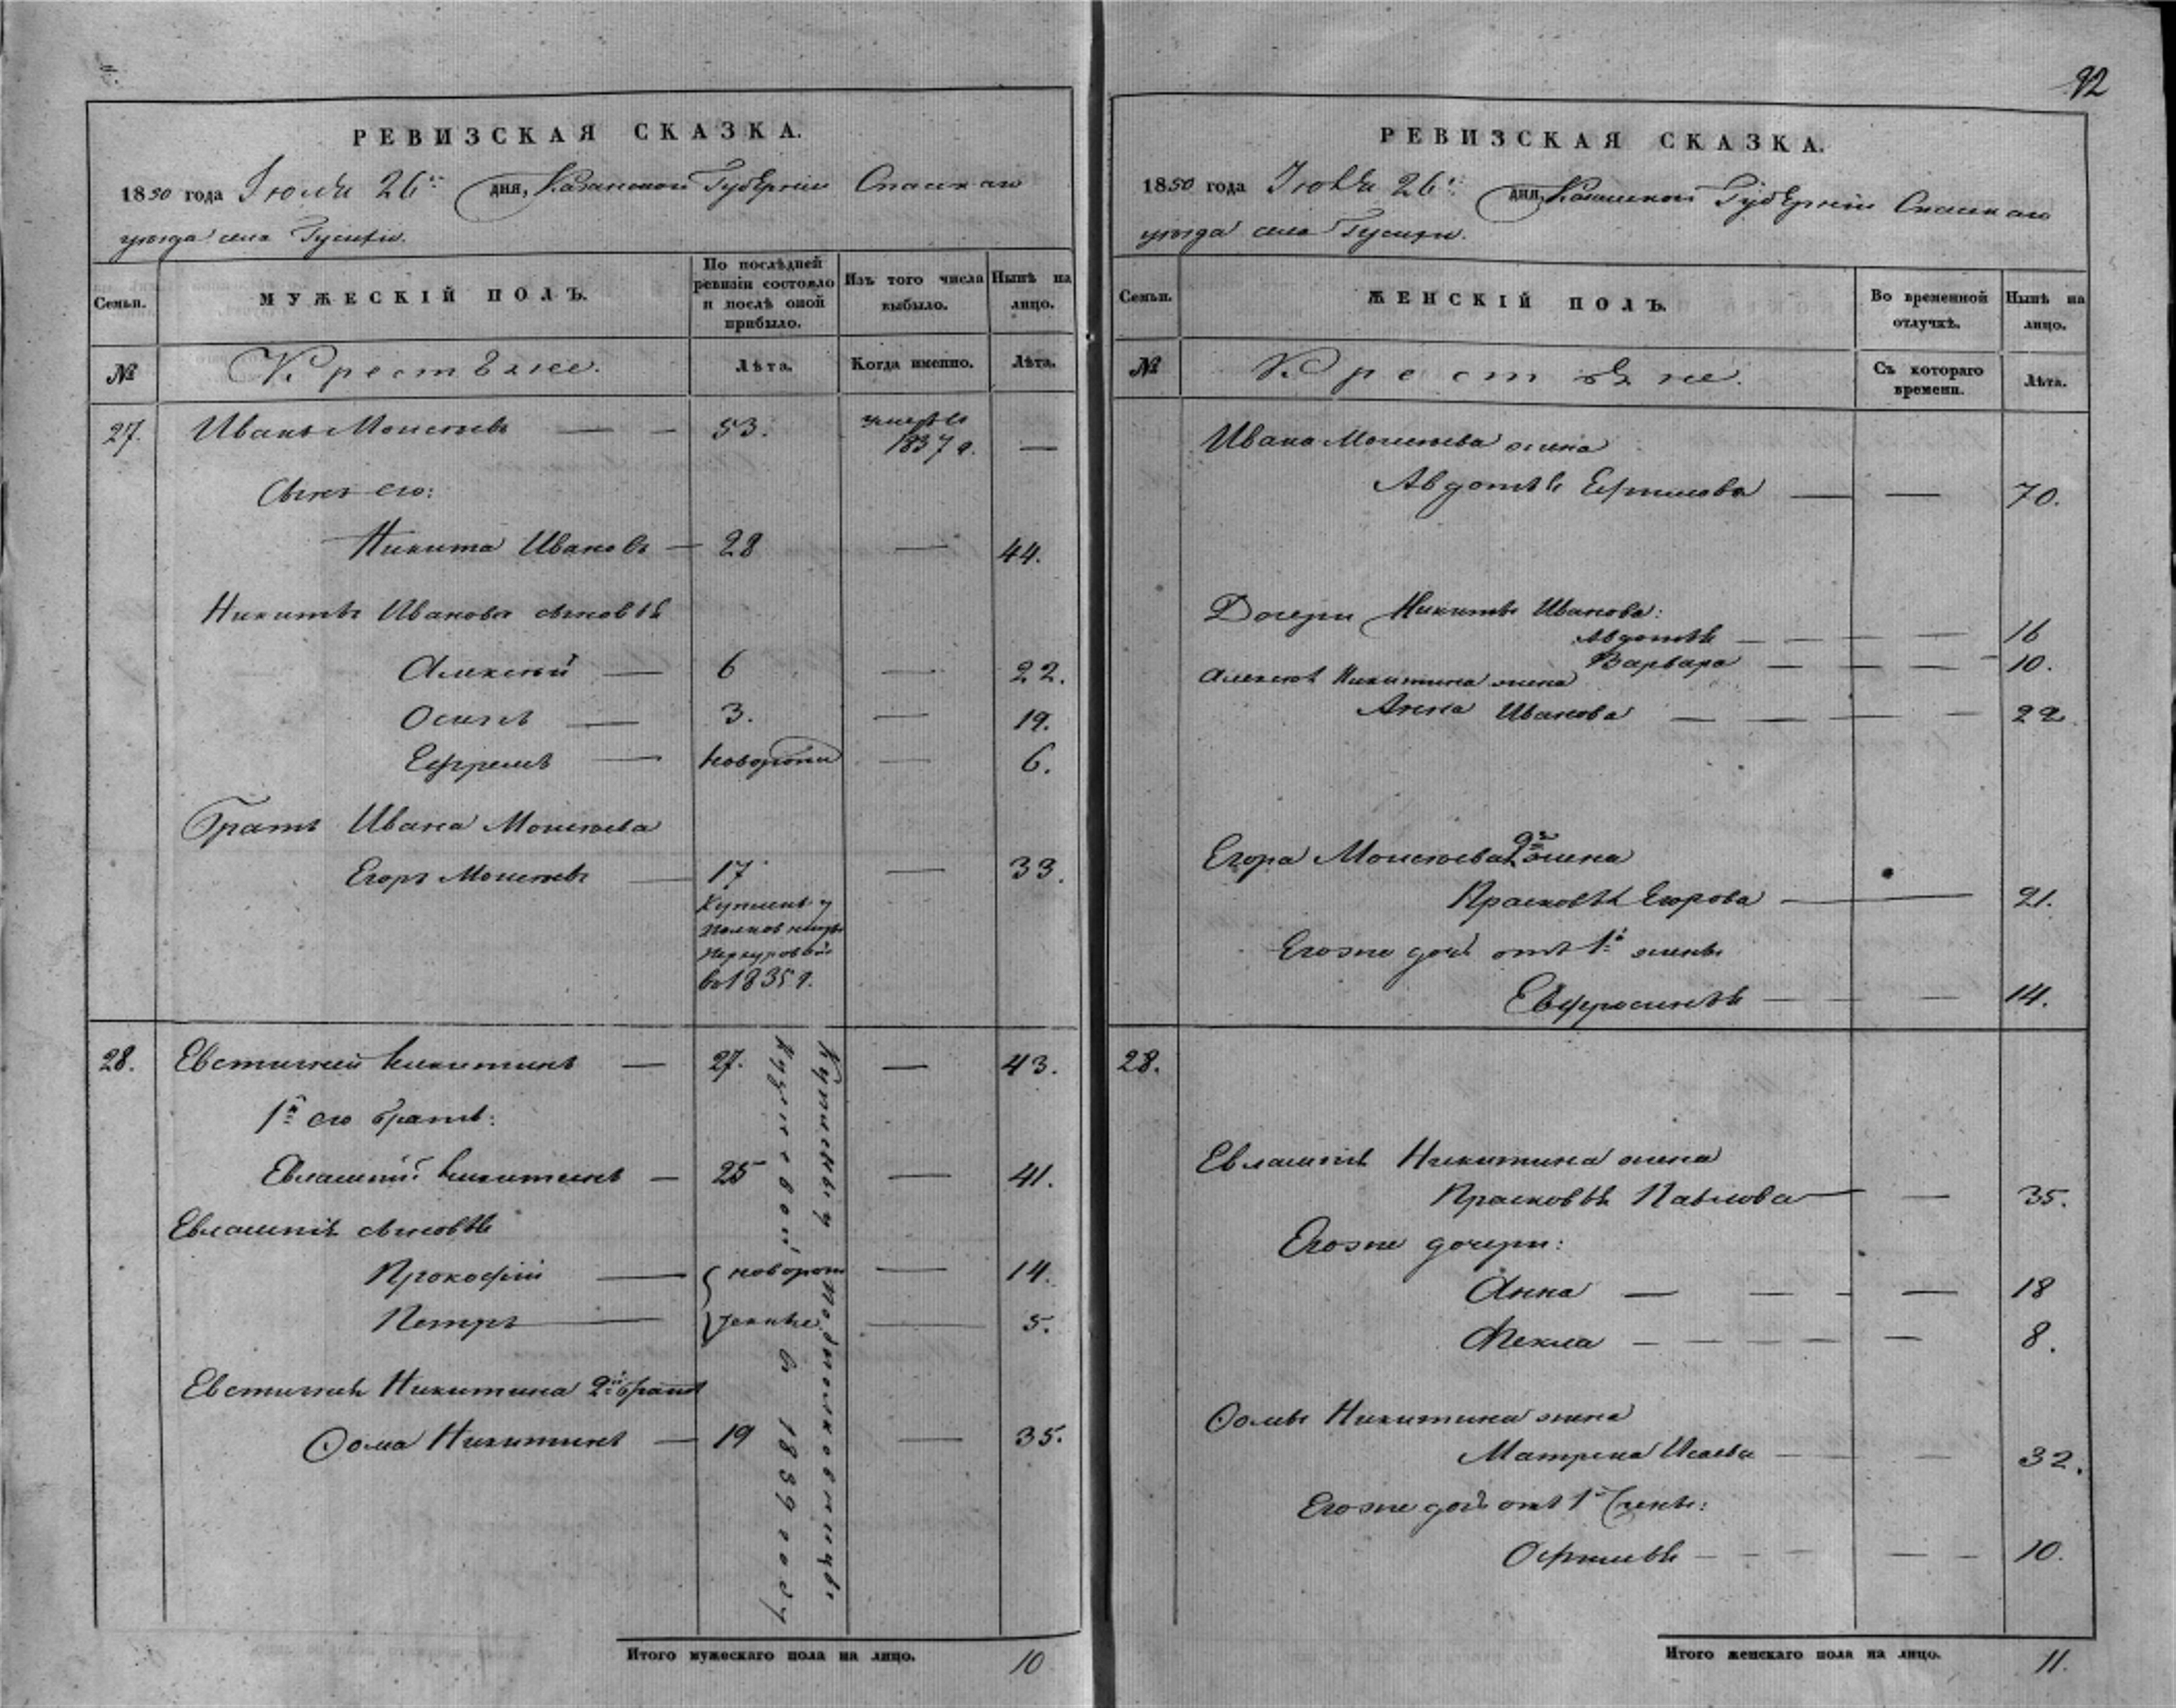 РЕВИЗСКАЯ СКАЗКА.
1850 года Июля 26го дня, Казанской Губерніи Спаскаго
уезда села
Семьи.
МУЖЕСКІЙ ПОЛЪ.
По послѣдней ревизіи состояло и послѣ оной прибыло.
Изъ того числа выбыло.
Нынѣ на лицо.
№
Крестьяне.
Лѣта.
Когда именно.
Лѣта.
27. Иванъ Моисеевъ — — 53. умеръ въ 1837 г. —
Сынъ его:
Никита Ивановъ — 28 — 44.
Никиты Иванова сыновья
Алексей — 6 — 22.
Осипъ — 3. — 19.
Ефремъ — новорожн — 6.
Братъ Ивана Моисеева
Егоръ Моисеевъ — 17 — 33.
Купленъ у
въ 1835 г.
28. Евстигней Никитинъ — 27. — 43.
1й его братъ:
Евлампий Никитинъ — 25 — 41.
Евлампія сыновья
Прокофій — новорож — 14.
Петръ — денные — 5.
Евстигнея Никитина 2й братъ
Фома Никитинъ — 19 — 35.
Куплены у подполковницы
1836 году
Итого мужескаго пола на лицо. 10
92
РЕВИЗСКАЯ СКАЗКА.
1850 года Июля 26го дня, Казанской Губерніи Спаскаго
уезда села
Семьи.
ЖЕНСКІЙ ПОЛЪ.
Во временной отлучкѣ.
Нынѣ на лицо.
№
Крестьяне.
Съ котораго времени.
Лѣта.
Ивана Моисеева жена
Авдотья Ефимова — — 70.
Дочери Никиты Иванова:
Авдотья — — — 16
Варвара — — — 10.
Алексея Никитина жена
Анна Иванова — — — 22
Егора Моисеева 2я жена
Прасковья Егорова — 21.
Егоже дочь отъ 1й жены
Евфросинья — — — 14.
28.
Евлампія Никитина жена
Прасковья Павлова — — 35.
Егоже дочери:
Анна — — — — 18
Фекла — — — — 8.
Фомы Никитина жена
Матрена Исаева — — 32.
Егоже дочь отъ 1й жены:
Офимья — — — — 10.
Итого женскаго пола на лицо. 11.